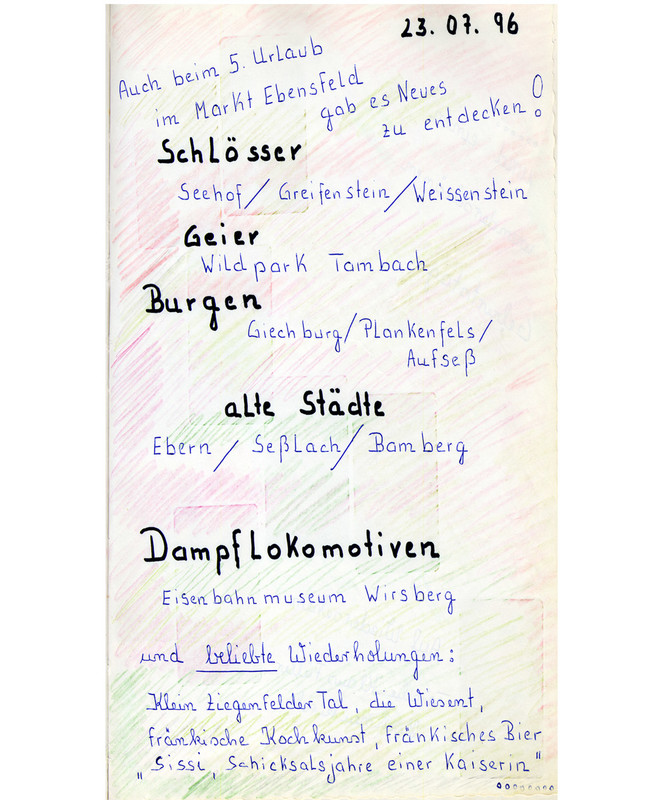 23. 07. 96
Auch beim 5. Urlaub
im Markt Ebensfeld
gab es Neues
zu entdecken!
Schlösser
Seehof / Greifenstein / Weissenstein
Geier
Wildpark Tambach
Burgen
Giechburg / Plankenfels /
Aufseß
alte Städte
Ebern / Seßlach / Bamberg
Dampflokomotiven
Eisenbahnmuseum Wirsberg
und beliebte Wiederholungen:
Klein Ziegenfelder Tal, die Wiesent,
fränkische Kochkunst, fränkisches Bier
„Sissi, Schicksalsjahre einer Kaiserin"